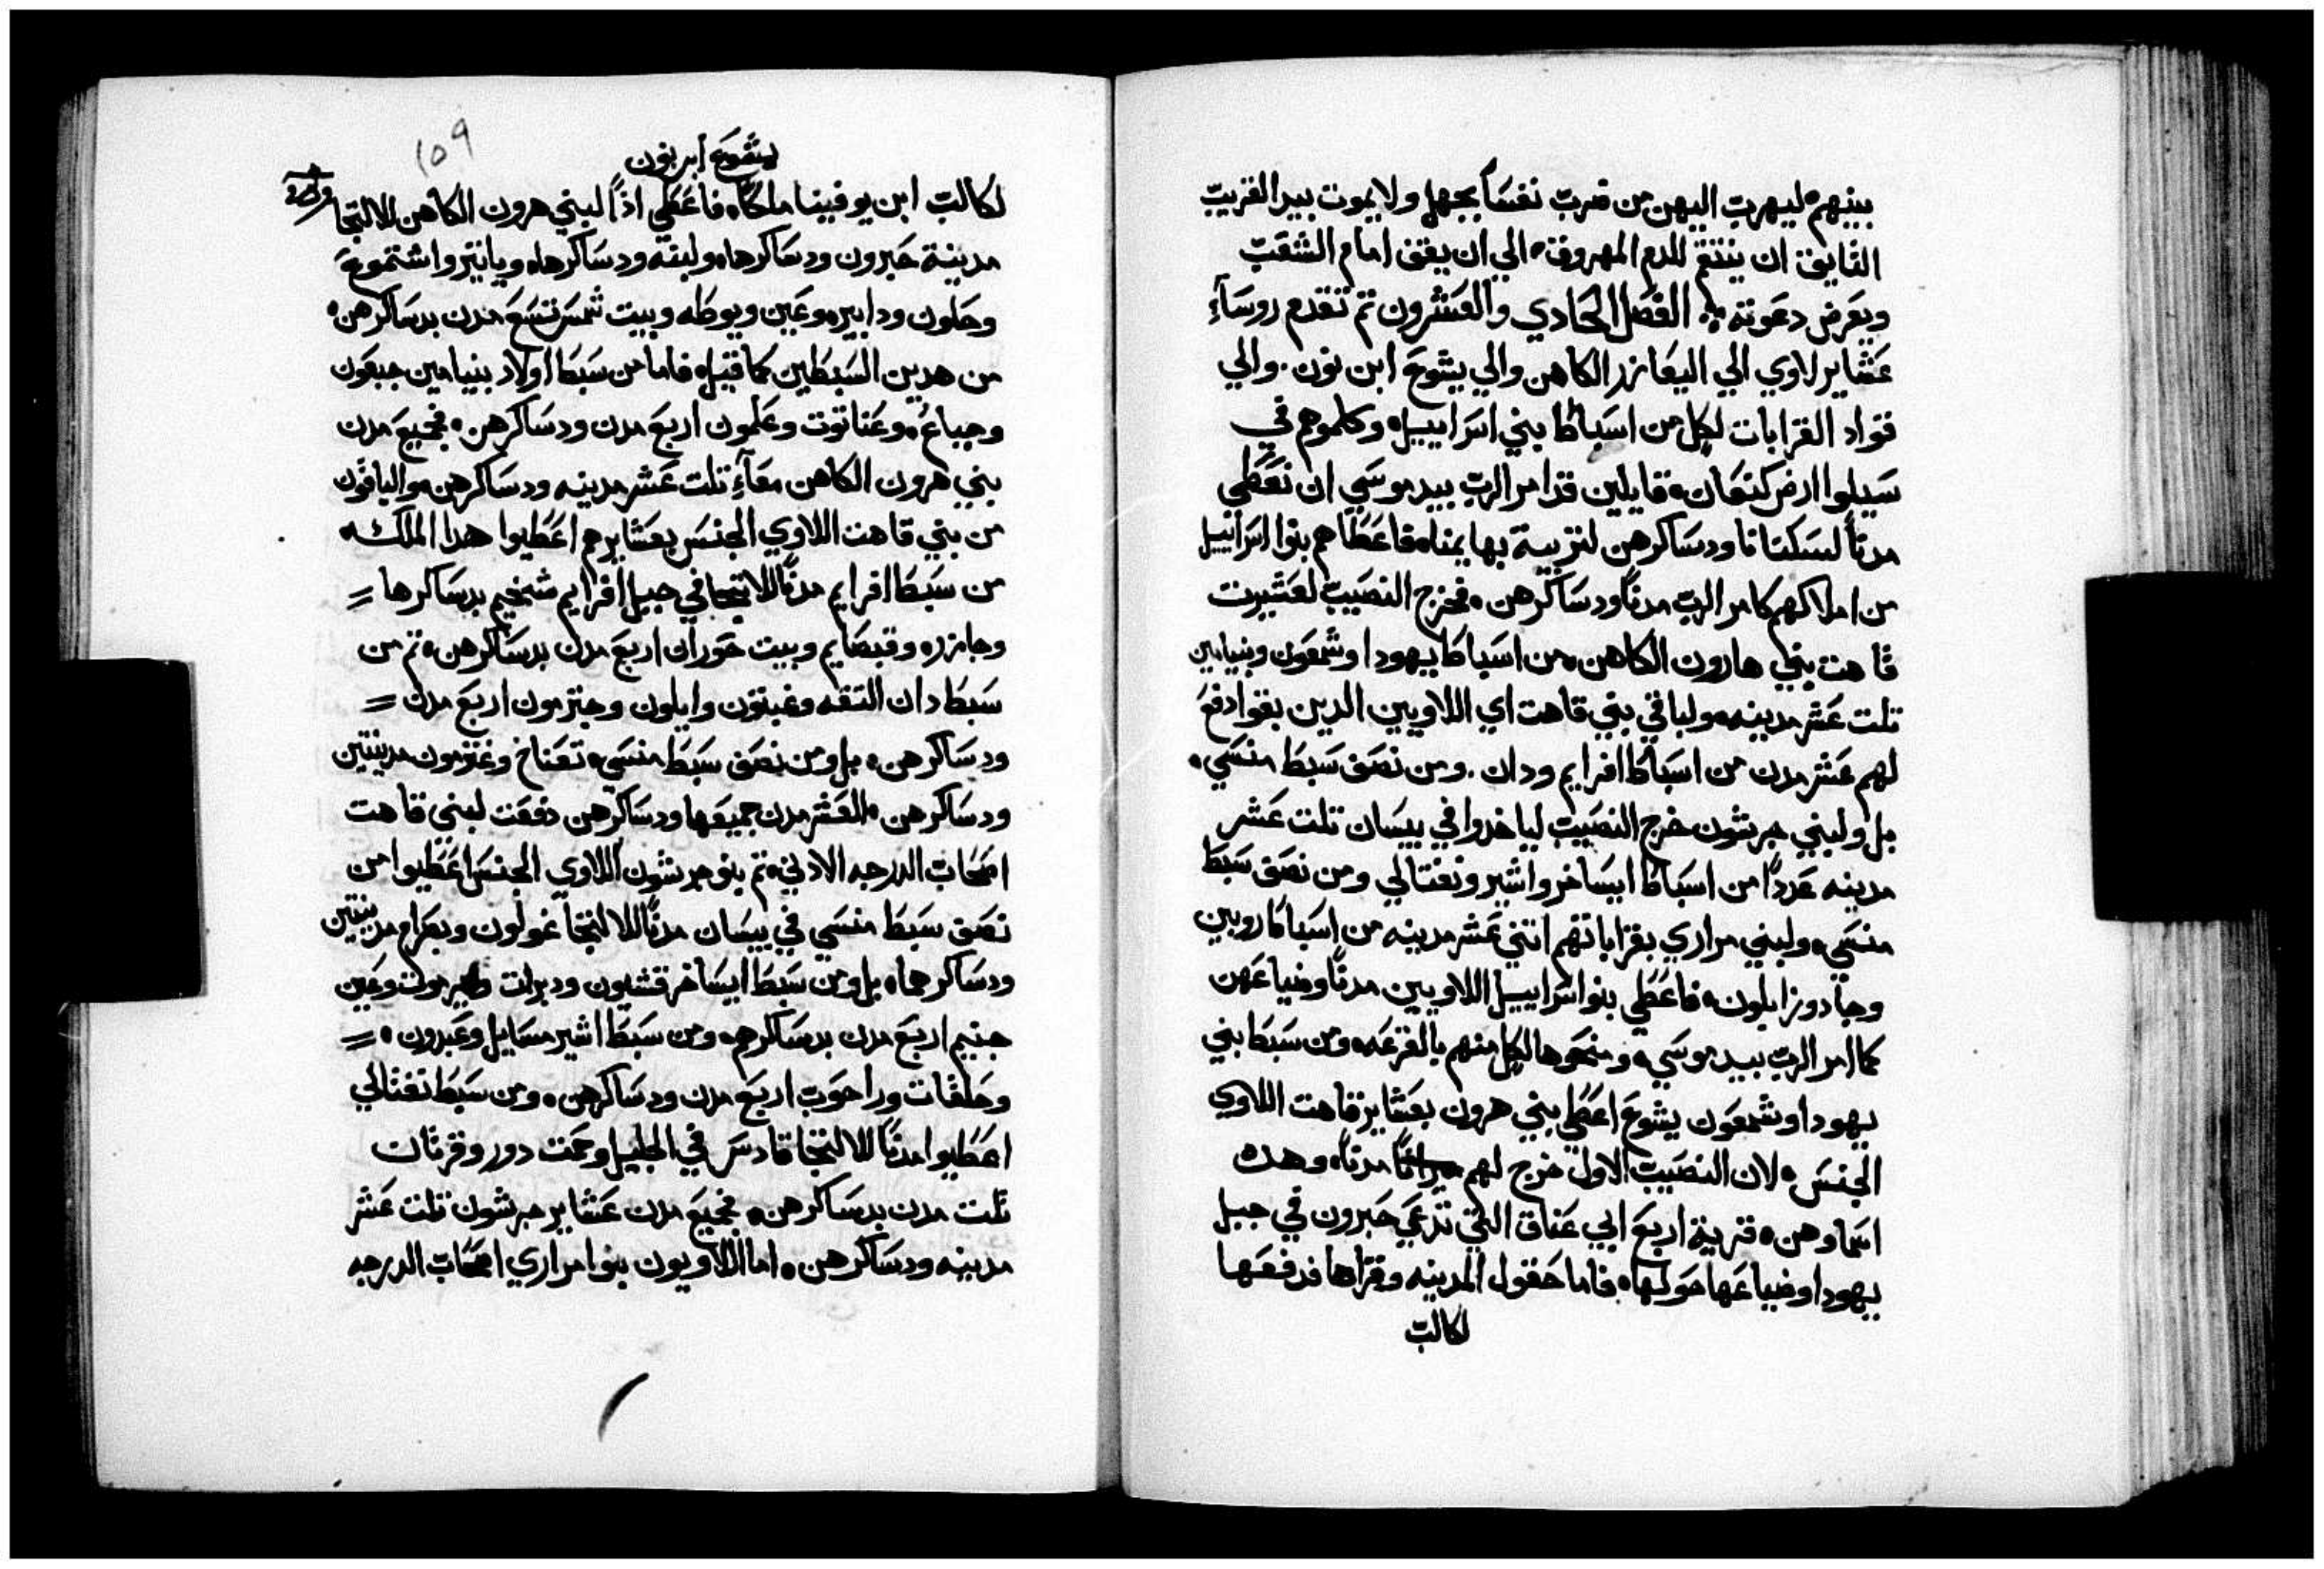 بينهم ليهرب اليهن من ضرب نفسًا بجهل ولا يموت بيد القريب
التايق ان ينتقم للدم المهروق الي ان يقف امام الشعب
ويعرض دعوته الفصل الحادي والعشرون تم تقدم روسآء
عشاير لاوي الي اليعازر الكاهن والي يشوع ابن نون. والي
قواد القرابات لكل من اسباط بني اسراييل وكلموهم في
سيلوا ارض كنعان قايلين قد امر الرب بيد موسي ان نعطي
مدنًا لسكنانا ودساكرهن لتربية بهايمنا فاعطاهم بنوا اسراييل
من املاكهم كامر الرب مدنًا ودساكرهن فخرج النصيب لعشيرت
قاهت بني هارون الكاهن من اسباط يهودا وشمعون وبنيامين
تلت عشر مدينه ولباقي بني قاهت اي اللاويين الدين بقوا دفع
لهم عشر مدن من اسباط افرايم ودان. ومن نصف سبط منسي
بل ولبني جرشون خرج النصيب لياخدوا في بيسان تلت عشر
مدينه عددًا من اسباط ايساخر واشير ونفتالي ومن نصف سبط
منسي ولبني مراري بقراباتهم اتني عشر مدينه من اسباط روبين
وجاد وزابلون فاعطي بنوا اسراييل اللاويين مدنًا وضياعهن
كما امر الرب بيد موسي ومنحوها لكل منهم بالقرعه ومن سبط بني
يهودا وشمعون يشوع اعطي بني هرون بعشاير قاهت اللاوي
الجنس لان النصيب الاول خرج لهم مدنًا وهده
اسماوهن قرية اربع ابي عناق التي تدعي حبرون في جبل
يهودا وضياعها حولها فاما حقول المدينه وقراها فدفعها
لكالب
١٥٩
يشوع ابن نون
لكالب ابن يوفينا ملكًا فاعطي اذًا لبني هرون الكاهن للالتجا
مدينة حبرون ودساكرها ولبنه ودساكرها ويايتر واشتموع
وحلون ودابير وعين ويوطه وبيت شمس تسع مدن بدساكرهن
من هدين السبطين كما قيل فاما من سبط اولاد بنيامين جبعون
وجباع وعناتوت وعلمون اربع مدن ودساكرهن فجميع مدن
بني هرون الكاهن معآء تلت عشر مدينه ودساكرهن والباقون
من بني قاهت اللاوي الجنس بعشايرهم اعطيوا هدا الملك
من سبط افرايم مدنًا للالتجا في جبل افرايم شخيم بدساكرها
وجازر وقبصايم وبيت حوران اربع مدن بدساكرهن تم من
سبط دان التقه وغبتون وايلون وجترمون اربع مدن
ودساكرهن بل ومن نصف سبط منسي تعناخ وغترمون مدينتين
ودساكرهن العشر مدن جميعها ودساكرهن دفعت لبني قاهت
اصحاب الدرجه الادني تم بنو جرشون اللاوي الجنس اعطيوا من
نصف سبط منسي في بيسان مدنًا للالتجا غولون وبصرام مدينتين
ودساكرهما بل ومن سبط ايساخر قشيون ودبرات ويرموت وعين
جنيم اربع مدن بدساكرهم ومن سبط اشير مسايل وعبدون
وحلقات وراحوب اربع مدن ودساكرهن ومن سبط نفتالي
اعطيوا مدنًا للالتجا قادس في الجليل وحمت دور وقرتان
تلت مدن بدساكرهن فجميع مدن عشاير جرشون تلت عشر
مدينه ودساكرهن اما اللاويون بنوا مراري اصحاب الدرجه